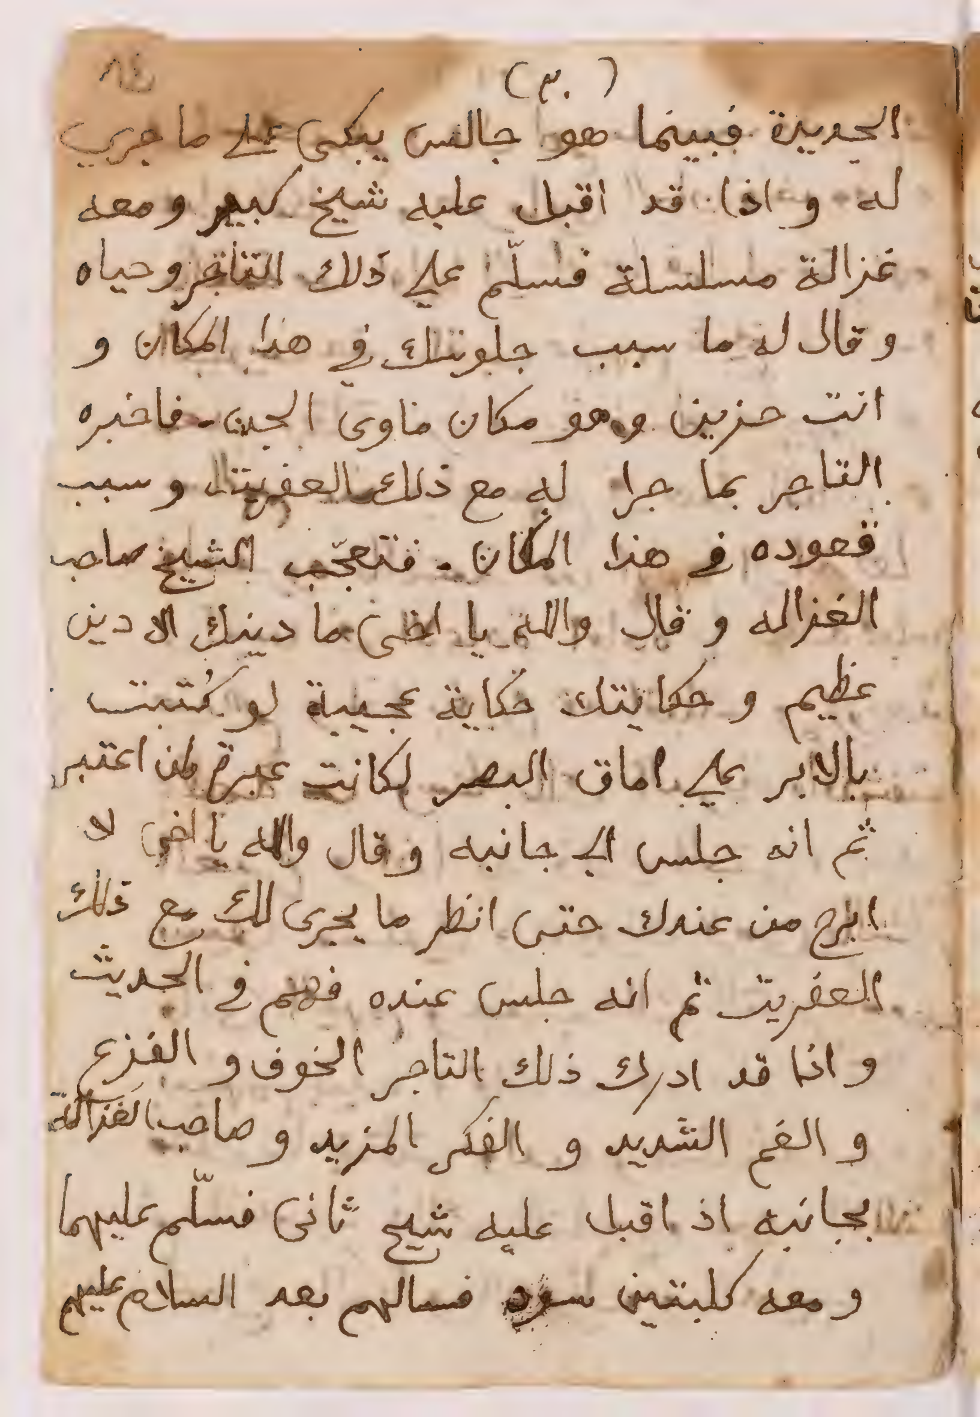 (٣٠)
الجديدة فبينما هو جالس يبكى على ما جري
له و اذا قد اقبل عليه شيخ كبير و معه
غزالة مسلسلة فسلّم علي ذلك التاجر و حياه
و قال له ما سبب جلوسك في هذا المكان و
انت حزين و هو مكان ماوى الجن . فاخبره
التاجر بما جرا له مع ذلك العفريت و سبب
قعوده في هذا المكان . فتعجّب الشيخ صاحب
الغزاله و قال والله يا اخى ما دينك الا دين
عظيم و حكايتك حكاية عجيبة لو كُتبت
بالابر علي اماق البصر لكانت عبرة لمن اعتبر
ثم انه جلس الي جانبه و قال والله يا اخى لا
ابرح من عندك حتى انظر ما يجرى لك مع ذلك
العفريت ثم انه جلس عنده فهم في الحديث
و اذا قد ادرك ذلك التاجر الخوف و الفزع
و الغم الشديد و الفكر المزيد و صاحب الغزالة
بجانبه اذ اقبل عليه شيخ ثانى فسلّم عليهما
و معه كلبتين سود فسالهم بعد السلام عليهم